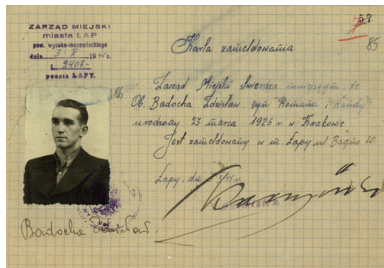 57
85
ZARZĄD MIEJSKI
miasta ŁAP
pow. wysoko-mazowieckiego
dnia
L. 2407.
poczta ŁAPY.
Karta zameldowania
Zarząd Miejski stwierdza niniejszym, że
Ob. Badocha Zdzisław syn Romana i
urodzony 23 marca 1926 r. w Krakowie
Jest zameldowany w m. Łapy ul Bagno 40.
Łapy, dn
Badocha Zdzisław.